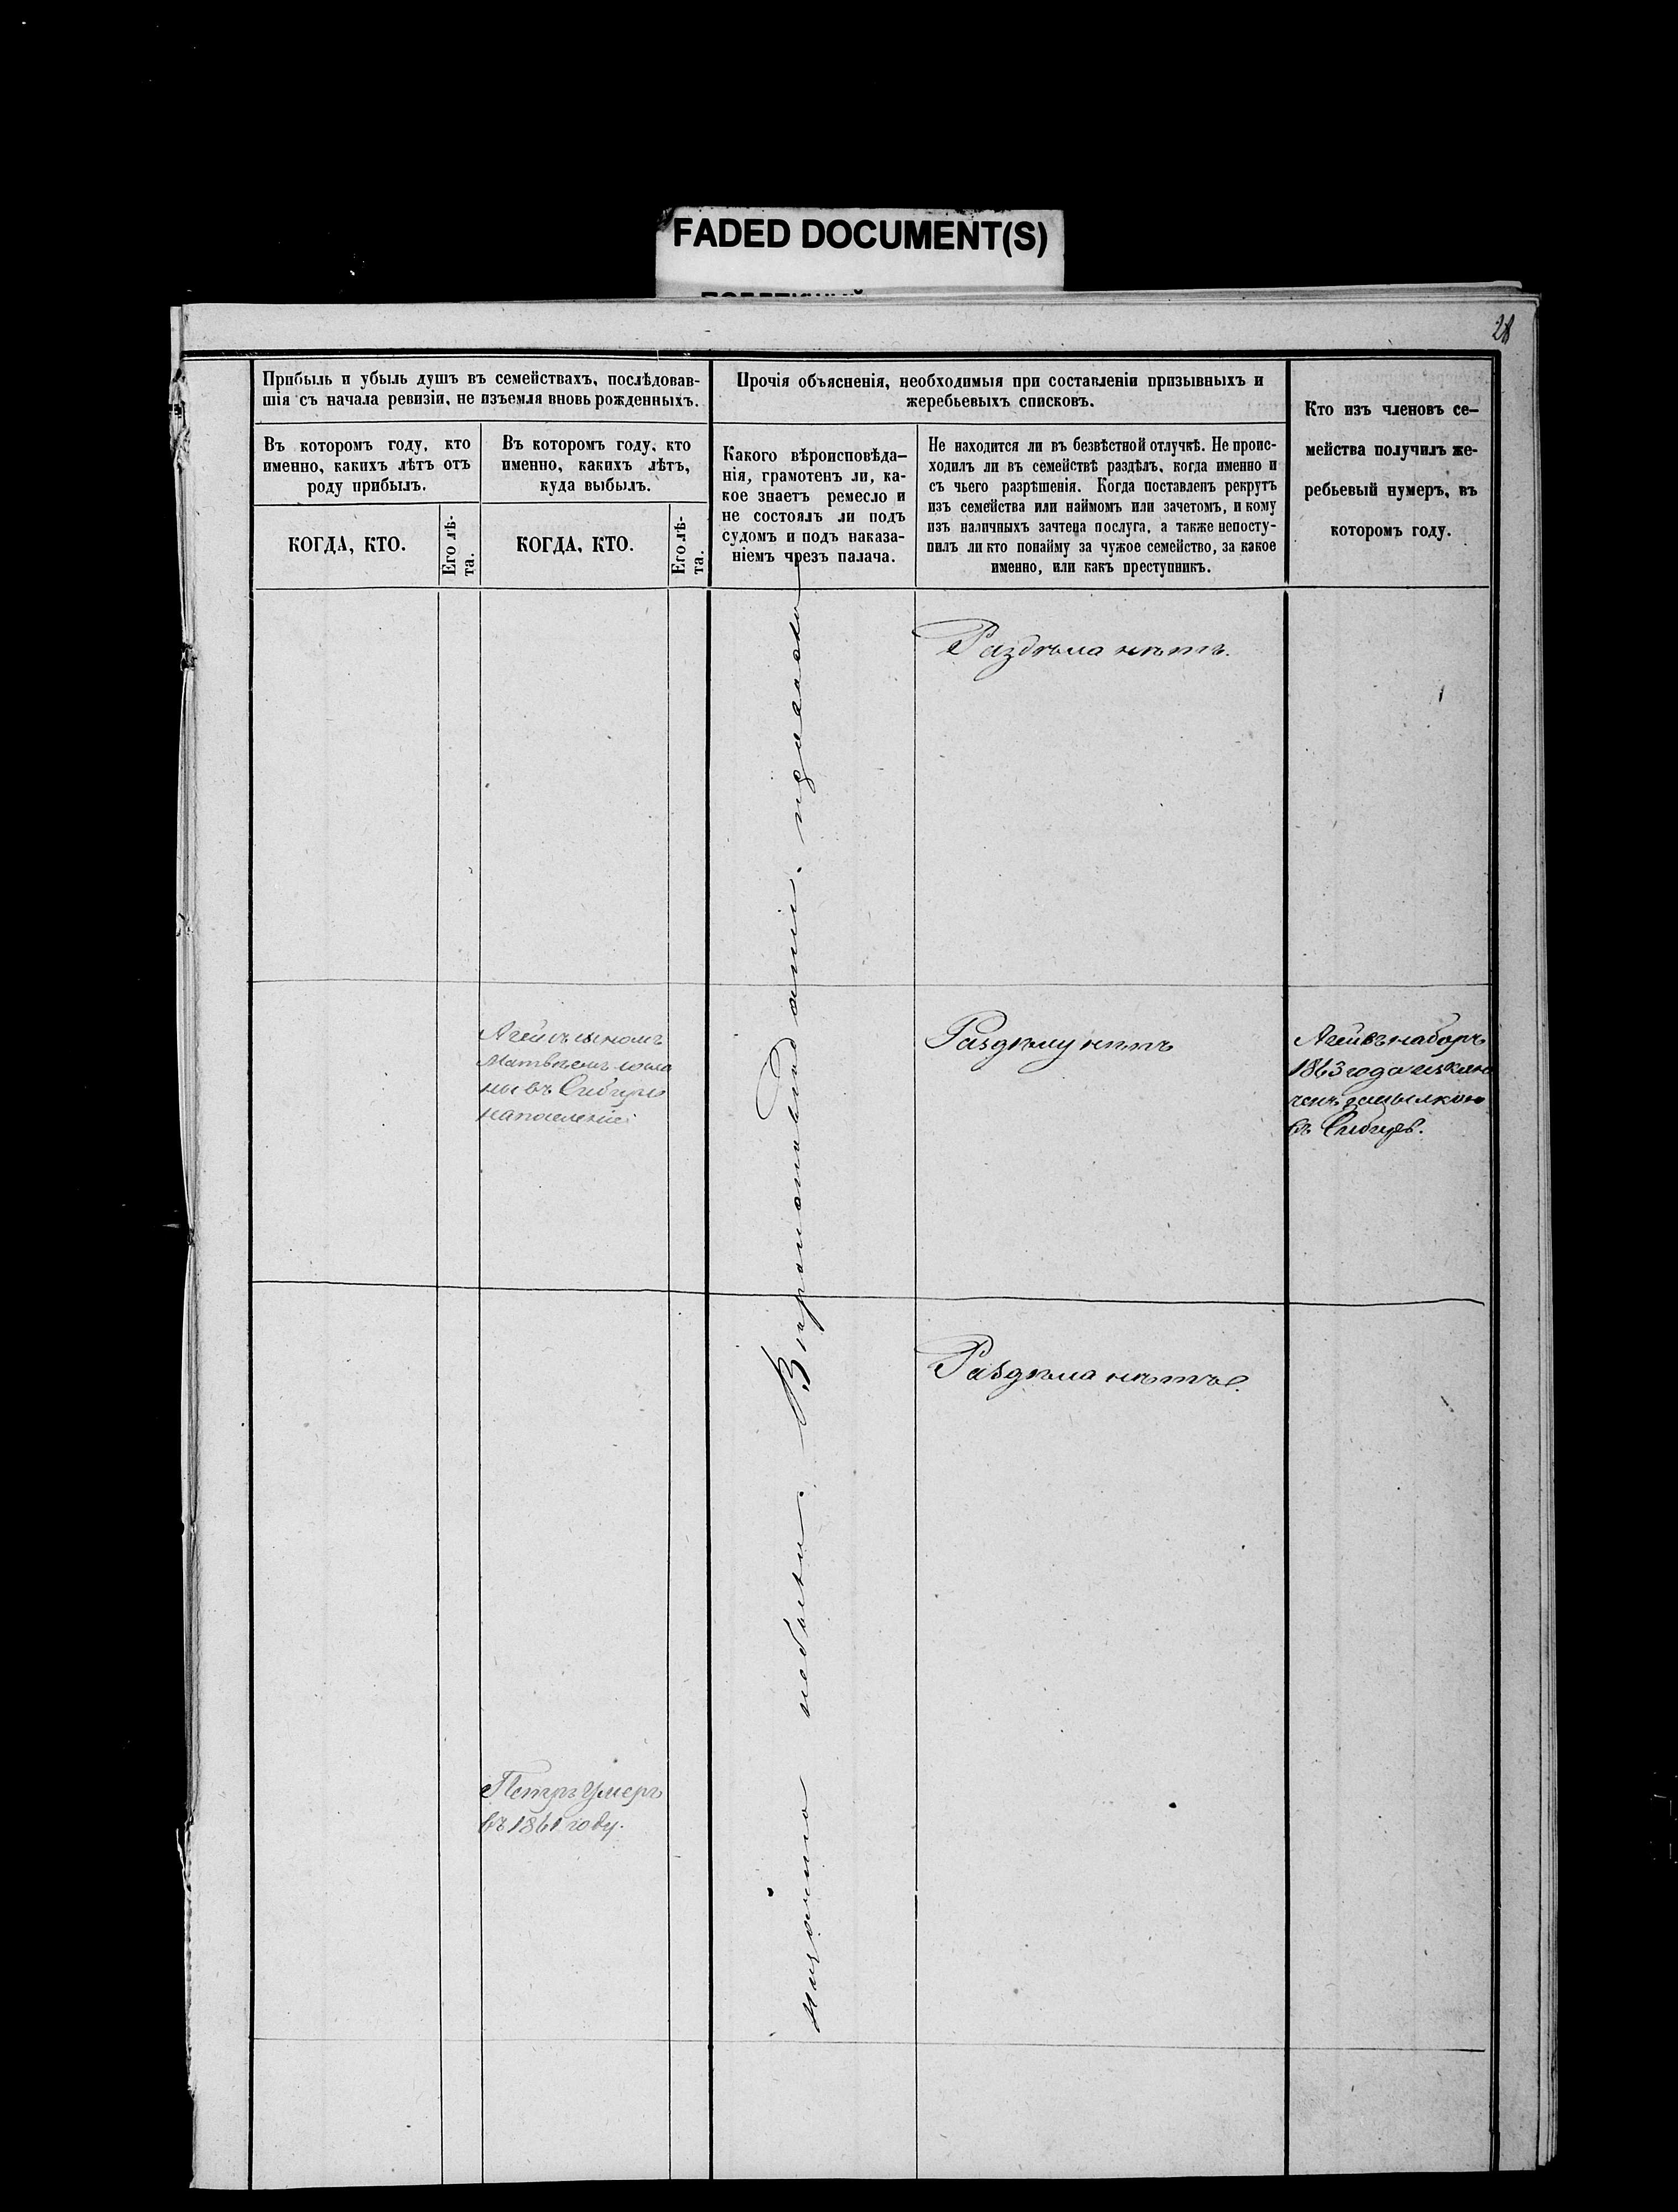 FADED DOCUMENT(S)
28
Прибыль и убыль душъ въ семействахъ, послѣдовав-
шія съ начала ревизіи, не изъемля вновь рожденныхъ.
Въ которомъ году, кто
именно, какихъ лѣтъ отъ
роду прибылъ.
КОГДА, КТО.
Его лѣ-
та.
Въ которомъ году, кто
именно, какихъ лѣтъ,
куда выбылъ.
КОГДА, КТО.
Его лѣ-
та.
Прочія объясненія, необходимыя при составленіи призывныхъ и
жеребьевыхъ списковъ.
Какого вѣроисповѣда-
нія, грамотенъ ли, ка-
кое знаетъ ремесло и
не состоялъ ли подъ
судомъ и подъ наказа-
ніемъ чрезъ палача.
Не находится ли въ безвѣстной отлучкѣ. Не проис-
ходилъ ли въ семействѣ раздѣлъ, когда именно и
съ чьего разрѣшенія. Когда поставленъ рекрутъ
изъ семейства или наймомъ или зачетомъ, и кому
изъ наличныхъ зачтена послуга, а также непосту-
пилъ ли кто понайму за чужое семейство, за какое
именно, или какъ преступникъ.
Кто изъ членовъ се-
мейства получилъ же-
ребьевый нумеръ, въ
которомъ году.
Раздѣла нѣтъ.
Агей съ сыномъ
Матвѣемъ сосла
ны въ Сибирь
на поселеніе
Раздѣлу нѣтъ
Агей въ наборъ
1863 года исклю
ченъ за ссылкою
въ Сибирь.
Раздѣла нѣтъ.
Петръ умеръ
въ 1861 году.
небыли. Вѣроисповѣданія